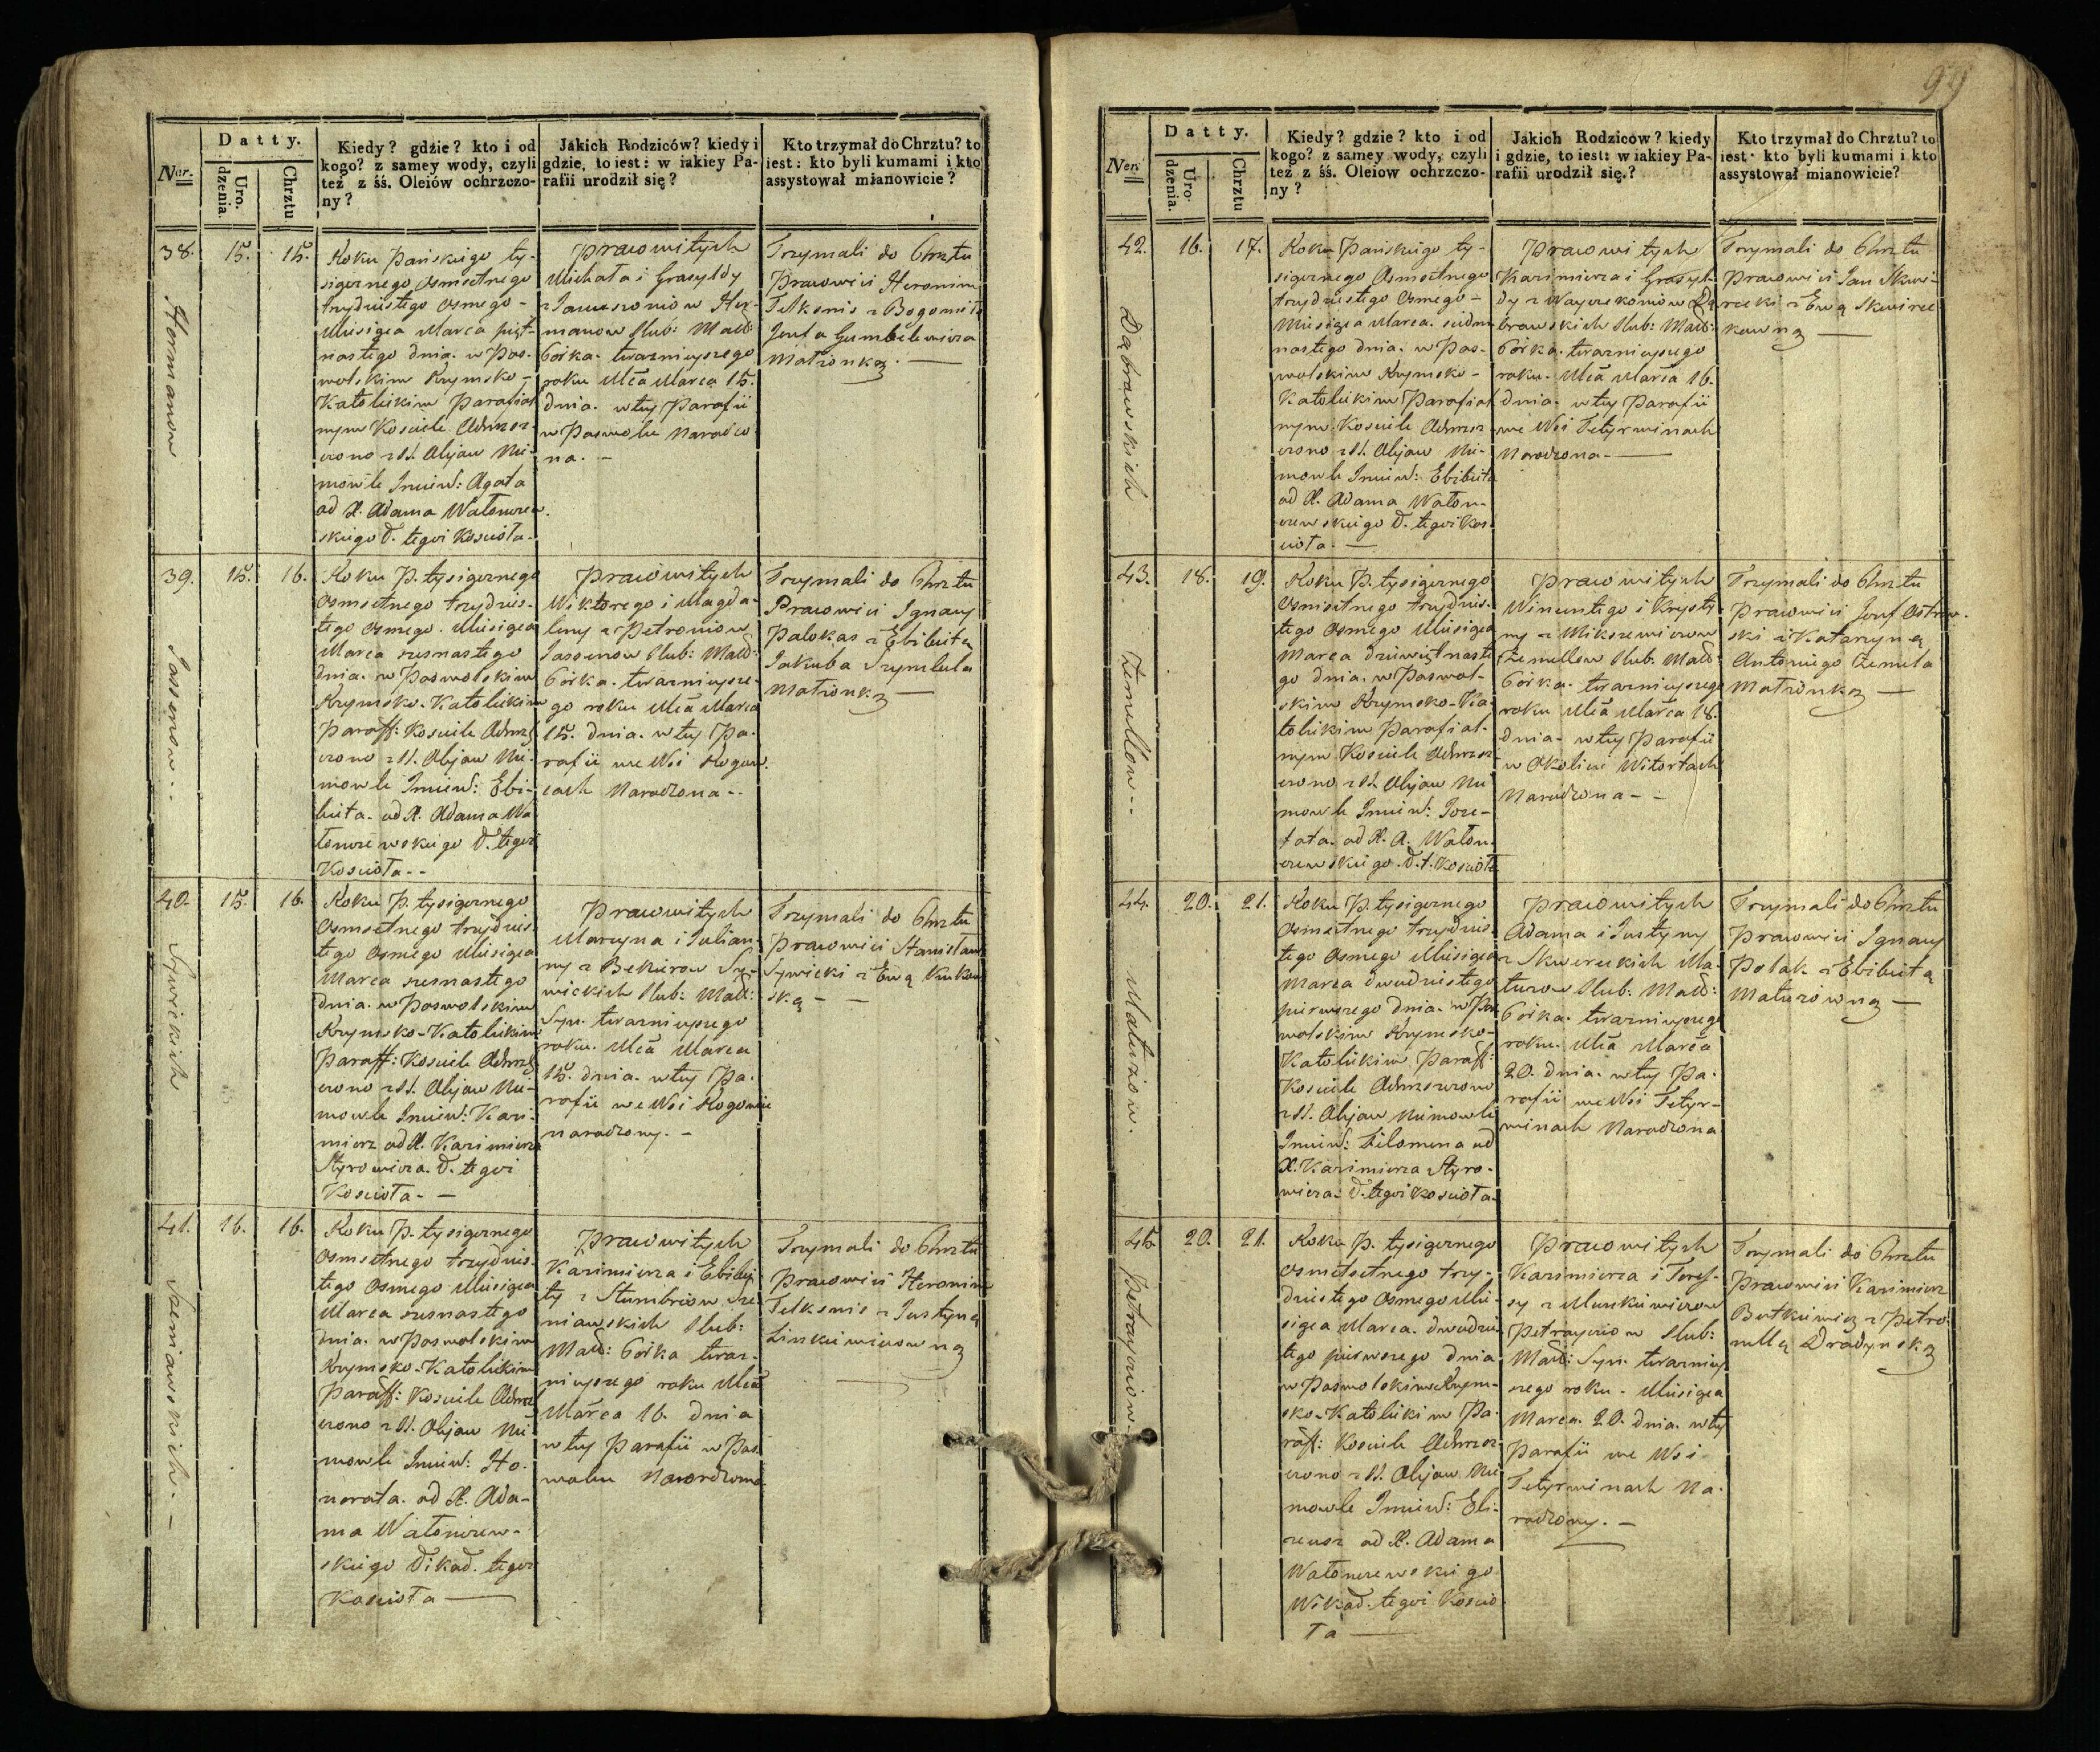 99
Datty.
Ner.
Uro-
dzenia.
Chrztu
Kiedy? gdzie? kto i od
kogo? z samey wody, czyli
też z śś. Oleiów ochrzczo-
ny?
Jakich Rodziców? kiedy i
gdzie, to iest: w iakiey Pa-
rafii urodził się?
Kto trzymał do Chrztu? to
iest: kto byli kumami i kto
assystował mianowicie?
38.
Hermanow
15.
15.
Roku Pańskiego ty-
siącznego Osmsetnego
trzydziestego Osmego -
Miesiąca Marca pięt-
nastego dnia. w Pos-
wolskim Rzymsko-
Katolickim Parafial
nym Kosciele Ochrzcz-
czono z SS. Olejow Nie-
mowle Imien: Agata
od X. Adama Watonczew-
skiego W. tegoż Kościoła.
Prawowitych
Michała i Grasyldy
z Januszoniow Her-
manow Slub: Małż:
Córka. teraznieyszego
roku Mca Marca 15.
dnia. w tey Parafii
w Poswolu Narodzo
na. -
Trzymali do Chrztu
Prawowici Heronim
Telksnis z Bogomiłą
Jozefa Gumbelewicza
Małżonką. —
39.
Jassenow..
15.
16.
Roku P. tysiącznego
Osmsetnego trzydzies-
tego Osmego. Miesiąca
Marca szesnastego
dnia. w Poswolskim
Rzymsko-Katolickim
Paraff: Kosciele Ochrz
czono z SS. Olejow Nie-
mowle Imien: Elż-
bieta. od X. Adama Wa
tonczewskiego W. tegoż
Kościoła--
Prawowitych
Wiktorego i Magda-
leny z Petroniow
Jassenow Slub: Małż:
Córka. teraznieysze-
go roku Mca Marca
15. dnia. w tey Pa-
rafii we Wsi Rogow.
cach Narodzona--
Trzymali do Chrztu
Prawowici Ignacy
Palokas z Elżbietą
Jakuba Szymkula
Małżonką —
40.
Sywickich
15.
16.
Roku P. tysiącznego
Osmsetnego trzydzies-
tego Osmego Miesiąca
Marca szesnastego
dnia. w Poswolskim
Rzymsko-Katolickim
Paraff: Kosciele Ochrz
czono z SS. Olejow Nie-
mowle Imien: Kazi-
mierz od X. Kazimierza
Styrowicza. W. tegoż
Kościoła. —
Prawowitych
Marcyna i Julian-
ny z Bekierow Sy-
wickich Slub: Małż:
Syn. teraznieyszego
roku. Mca Marca
15. dnia. w tey Pa-
rafii we Wsi Rogowie
narodzony. -
Trzymali do Chrztu
Prawowici Stanisław
Sywicki z Ewą Kukow
ską - -
41.
Szeniawskich. -
16.
16.
Roku P. tysiącznego
Osmsetnego trzydzies-
tego Osmego Miesiąca
Marca szesnastego
dnia. w Poswolskim
Rzymsko-Katolickim
Paraff: Kosciele Ochrz
czono z SS. Olejow Nie
mowle Imien: Ho-
norata. od X. Ada-
ma Watonczew-
skiego Wikad. tegoż
Kościoła —
Prawowitych
Kazimierza i Elżbie
ty z Stumbriow Sze
niawskich Slub:
Małż: Córka teraz-
nieyszego roku Mca
Marca 16. dnia
w tey Parafii w Pos
wolu Narodzona
Trzymali do Chrztu
Prawowici Heronim
Telksnis z Justyną
Linkiewiczowną
Datty.
Ner.
Uro-
dzenia.
Chrztu
Kiedy? gdzie? kto i od
kogo? z samey wody, czyli
też z śś. Oleiow ochrzczo-
ny?
Jakich Rodzicow? kiedy
i gdzie, to iest: w iakiey Pa-
rafii urodził się.?
Kto trzymał do Chrztu? to
iest: kto byli kumami i kto
assystował mianowicie?
42.
Dąbrawskich
16.
17.
Roku Pańskiego ty-
siącznego Osmsetnego
trzydziestego Osmego -
Miesiąca Marca. siedm
nastego dnia. w Pos-
wolskim Rzymsko-
Katolickim Parafial
nym Kosciele Ochrzcz
czono z SS. Olejow Nie-
mowle Imien: Elżbieta
od X. Adama Waton-
czewskiego W. tegoż Koś-
cioła. —
Prawowitych
Kazimierza i Grasyl-
dy z Wayczekoniow Dą
brawskich Slub: Małż:
Córka. teraznieyszego
roku. Mca Marca 16.
dnia. w tey Parafii
we Wsi Tetyrwinach
Narodzona. —
Trzymali do Chrztu
Prawowici Jan Skwi-
recki z Ewą Skwirec
kowną —
43.
Żemellow--
18.
19.
Roku P. tysiącznego
Osmsetnego trzydzies-
tego Osmego Miesiąca
Marca dziewiętnaste
go dnia. w Poswol-
skim Rzymsko-Ka-
tolickim Parafial-
nym Kosciele Ochrzcz
czono z SS. Olejow Nie
mowle Imien: Joze-
fata. od X. A. Waton-
czewskiego. W. t. Kościoła
Prawowitych
Wincentego i Krysty
ny z Mikszewiczow
Żemellow Slub. Małż:
Córka. teraznieyszego
roku Mca Marca 18.
dnia. w tey Parafii
w Okolicy Witortach
Narodzona--
Trzymali do Chrztu
Prawowici Jozef Ostrow-
ski z Katarzyną
Antoniego Żemela
Małżonką —
44.
Matuzow.
20.
21.
Roku P. tysiącznego
Osmsetnego trzydzies-
tego Osmego Miesiąca
Marca dwudziestego
pierwszego dnia. w Pos
wolskim Rzymsko-
Katolickim Paraff:
Kosciele Ochrzczono
z SS. Olejow Niemowle
Imien: Filomena od
X. Kazimierza Styro-
wicza. W. tegoż Kościoła.
Prawowitych
Adama i Justyny
z Skwereckich Ma-
tuzow Slub. Małż:
Córka. teraznieyszego
roku. Mca Marca
20. dnia. w tey Pa-
rafii we Wsi Tetyr-
winach Narodzona
Trzymali do Chrztu
Prawowici Ignacy
Polak z Elżbietą
Matuzowną —
45.
Petrayciow.
20.
21.
Roku P. tysiącznego
Osmsetnego trzy-
dziestego Osmego Mie-
siąca Marca. dwudzies
tego pierwszego dnia
w Poswolskim Rzym-
sko-Katolickim Pa-
raff: Kosciele Ochrzcz
czono z SS. Olejow Nie
mowle Imien: Eli-
zeusz od X. Adama
Watonczewskiego
Wikad. tegoż Kościo
ła —
Prawowitych
Kazimierza i Teres-
sy z Munkiewiczow
Petrayciow Slub:
Małż: Syn. terazniey
szego roku. Miesiąca
Marca. 20. dnia. w tey
Parafii we Wsi
Tetyrwinach Na-
rodzony. —
Trzymali do Chrztu
Prawowici Kazimierz
Butkiewicz z Petro-
nellą Dradynską